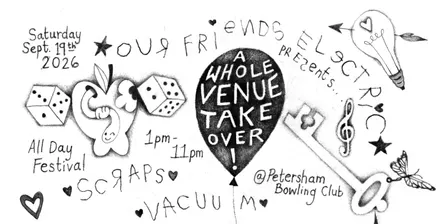 Saturday
Sept. 19th
2026
OUR FRIENDS
ELECTRIC
PRESENTS...
A
WHOLE
VENUE
TAKE
OVER
!
All Day
Festival
1pm-
11pm
@Petersham
Bowling Club
SCRAPS
VACUUM